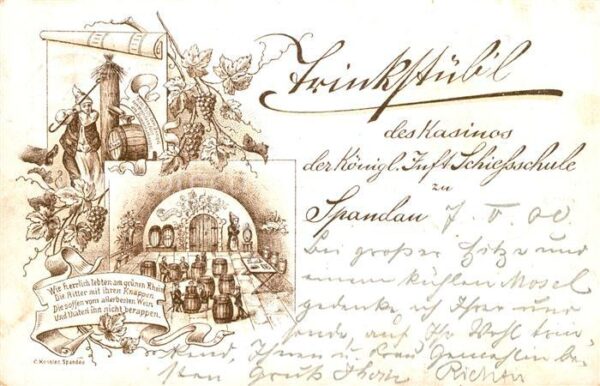 Trinkstüb'l
des Kasinos
der Königl. Inft Schiessschule
zu
Spandau 7. V. 00
Bei großer Hitze und
einem kühlen Mosel
gedenke ich Ihrer und
sende, auf Ihr Wohl trin-
kend, Ihnen u. Frau Gemahlin be-
sten Gruß Ihr Richter
Wie herrlich lebten am grünen Rhein
Die Ritter mit ihren Knappen
Die soffen vom allerbesten Wein
Und thaten ihn nicht berappen.
C. Kessler, Spandau